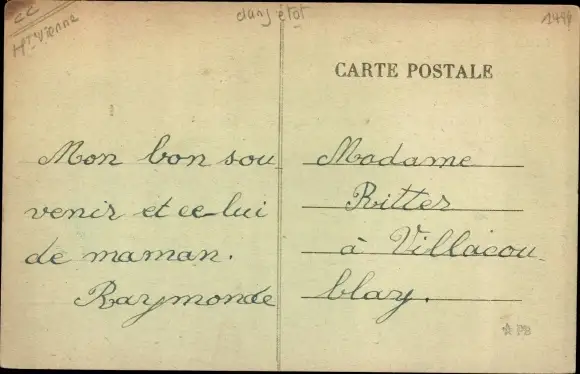 CC
Hte Vienne
dans l'état
CARTE POSTALE
Mon bon sou
venir et ce-lui
de maman.
Raymonde
Madame
Ritter
à Villacou-
blay.
PB